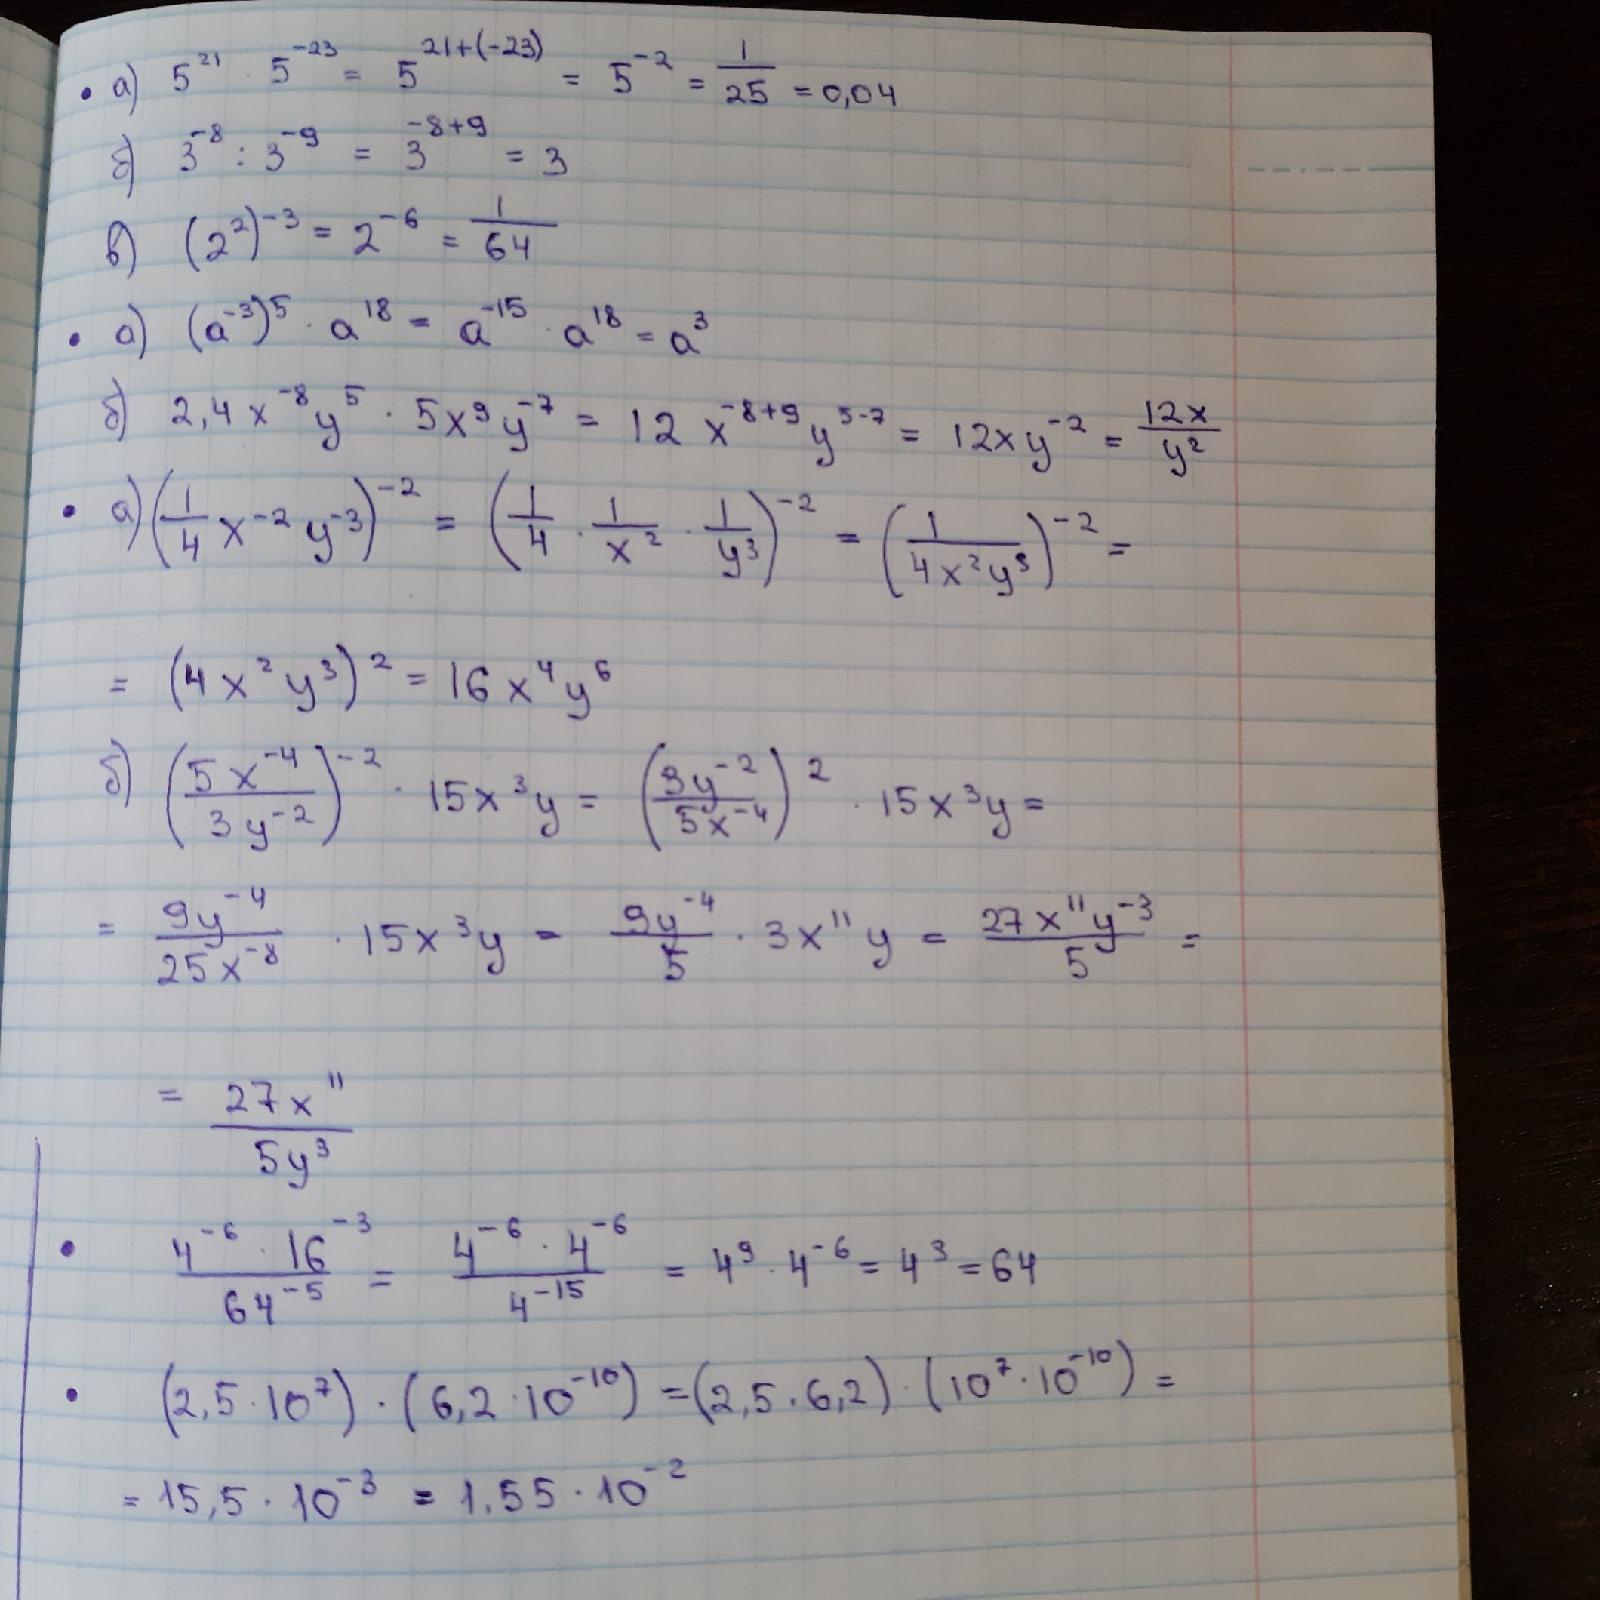 • а) 5²¹ · 5⁻²³ = 5²¹⁺⁽⁻²³⁾ = 5⁻² = 1/25 = 0,04
б) 3⁻⁸ : 3⁻⁹ = 3⁻⁸⁺⁹ = 3
в) (2²)⁻³ = 2⁻⁶ = 1/64
• а) (a⁻³)⁵ · a¹⁸ = a⁻¹⁵ · a¹⁸ = a³
б) 2,4x⁻⁸y⁵ · 5x⁹y⁻⁷ = 12x⁻⁸⁺⁹y⁵⁻⁷ = 12xy⁻² = 12x/y²
• а) (1/4 x⁻² y⁻³)⁻² = (1/4 · 1/x² · 1/y³)⁻² = (1/(4x²y³))⁻² =
= (4x²y³)² = 16x⁴y⁶
б) (5x⁻⁴/3y⁻²)⁻² · 15x³y = (3y⁻²/5x⁻⁴)² · 15x³y =
= 9y⁻⁴/25x⁻⁸ · 15x³y = 9y⁻⁴/5 · 3x¹¹y = 27x¹¹y⁻³/5 =
= 27x¹¹/5y³
• 4⁻⁶ · 16⁻³/64⁻⁵ = 4⁻⁶ · 4⁻⁶/4⁻¹⁵ = 4⁹ · 4⁻⁶ = 4³ = 64
• (2,5 · 10⁷) · (6,2 · 10⁻¹⁰) = (2,5 · 6,2) · (10⁷ · 10⁻¹⁰) =
= 15,5 · 10⁻³ = 1,55 · 10⁻²